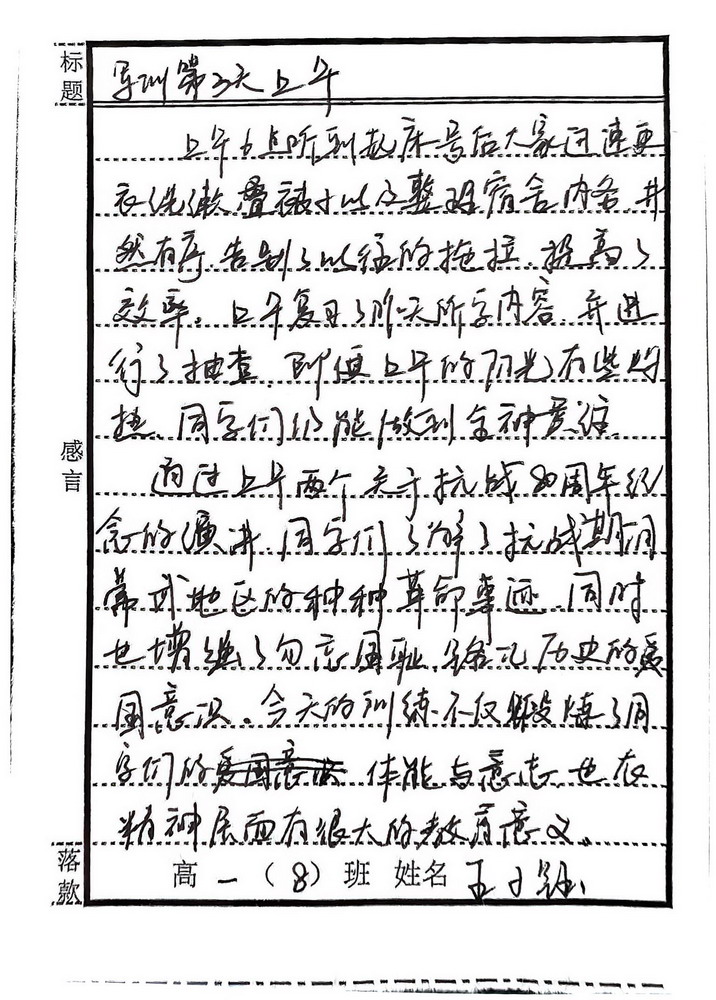 标题
军训第三天上午
上午6点听到起床号后大家迅速更
衣洗漱、叠被子以及整理宿舍内务,井
然有序,告别了以往的拖拉,提高了
效率。上午复习了昨天所学内容,并进
行了抽查,即便上午的阳光有些灼
热,同学们仍能做到全神贯注。
感言
通过上午两个关于抗战80周年纪
念的演讲,同学们了解了抗战期间
地区的种种革命事迹,同时
也增强了勿忘国耻,铭记历史的爱
国意识。今天的训练不仅锻炼了同
学们的体能与意志,也在
精神层面有很大的教育意义。
落款
高一(8)班 姓名 王子